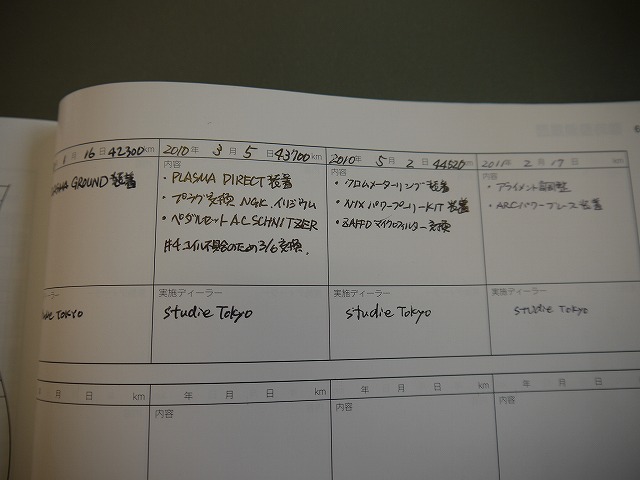 月 16 日 42300 km
2010 年 3 月 5 日 43700 km
2010 年 5 月 2 日 44520 km
2011 年 2 月 17 日 km
GROUND 装着
内容
・PLASMA DIRECT 装着
・プラグ交換 NGK イリジウム
・ペダルセット AC SCHNITZER
#4 コイル不具合のため 3/6 交換.
内容
・クロムメーターリング装着
・パワープーリーKIT 装着
・マイクロフィルター交換
内容
・アライメント調整
・ARCパワーブレース装着
Tokyo
実施ディーラー
studie Tokyo
実施ディーラー
studie Tokyo
実施ディーラー
studie Tokyo
年 月 日 km
年 月 日 km
年 月 日 km
年 月 日
内容
内容
内容